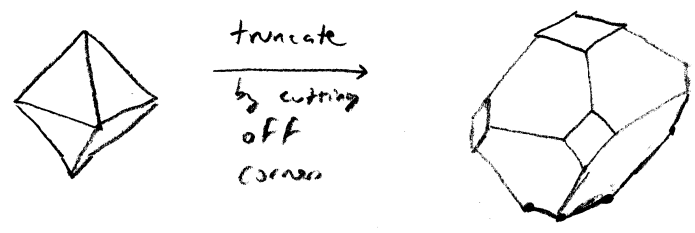 truncate
by cutting
off
corners